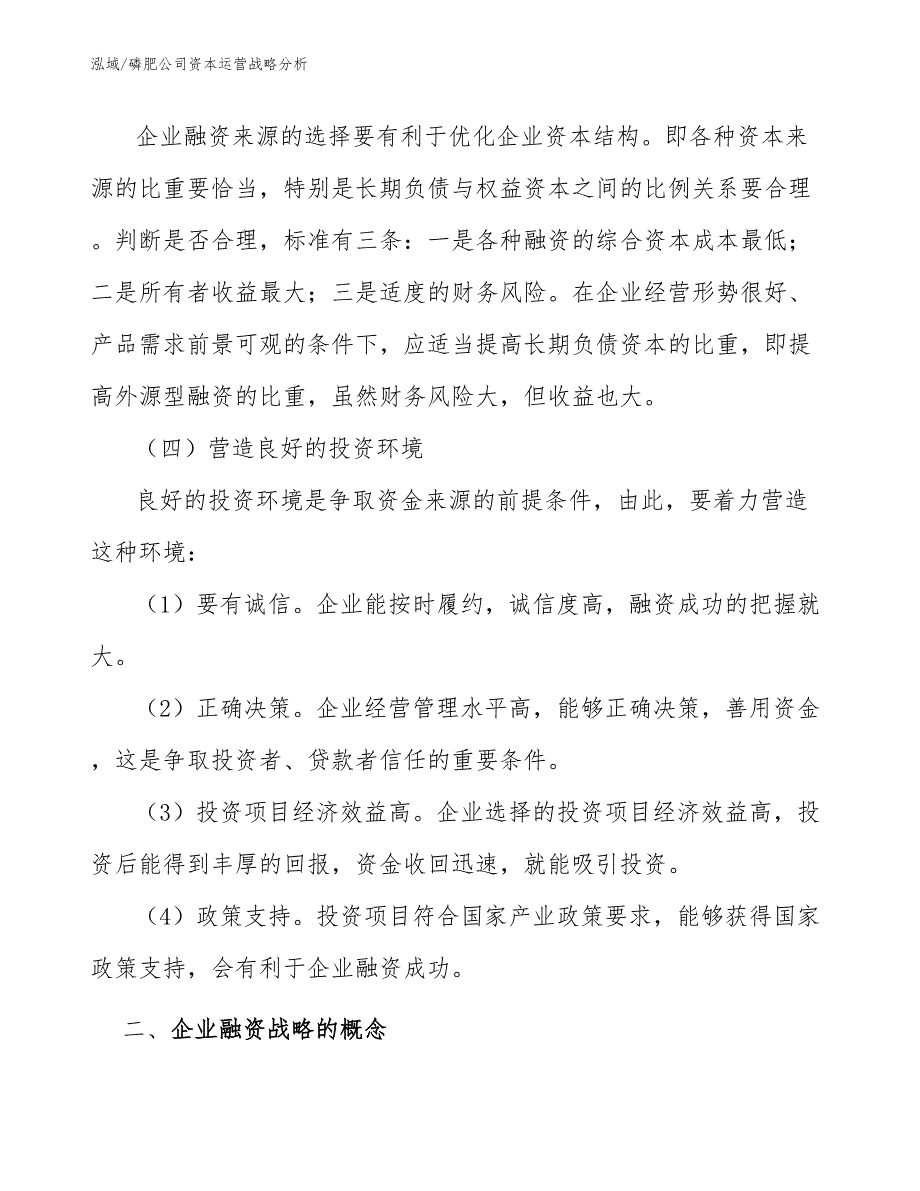 泓域/磷肥公司资本运营战略分析
企业融资来源的选择要有利于优化企业资本结构。即各种资本来
源的比重要恰当，特别是长期负债与权益资本之间的比例关系要合理
。判断是否合理，标准有三条：一是各种融资的综合资本成本最低；
二是所有者收益最大；三是适度的财务风险。在企业经营形势很好、
产品需求前景可观的条件下，应适当提高长期负债资本的比重，即提
高外源型融资的比重，虽然财务风险大，但收益也大。
（四）营造良好的投资环境
良好的投资环境是争取资金来源的前提条件，由此，要着力营造
这种环境：
（1）要有诚信。企业能按时履约，诚信度高，融资成功的把握就
大。
（2）正确决策。企业经营管理水平高，能够正确决策，善用资金
，这是争取投资者、贷款者信任的重要条件。
（3）投资项目经济效益高。企业选择的投资项目经济效益高，投
资后能得到丰厚的回报，资金收回迅速，就能吸引投资。
（4）政策支持。投资项目符合国家产业政策要求，能够获得国家
政策支持，会有利于企业融资成功。
二、企业融资战略的概念